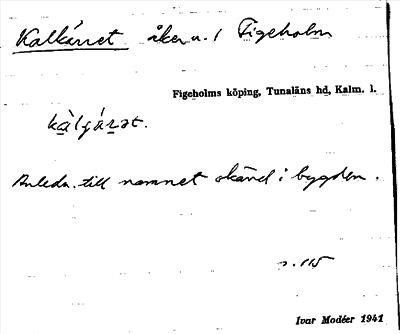 Kalkärret åker n. 1 Figeholm
Figeholms köping, Tunaläns hd, Kalm. l.
kàlçárət.
Anledn. till namnet okänd i bygden.
s. 115
Ivar Modéer 1941